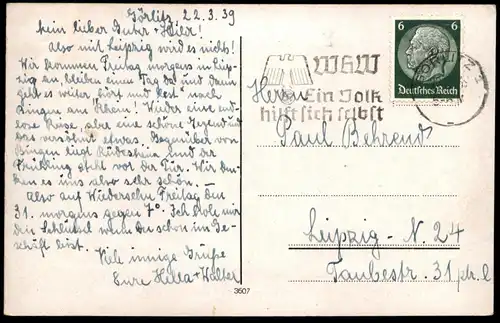 Görlitz 22.3.39
Mein lieber Guhr-Heiler!
Also mit Leipzig wird es nicht!
Wir kommen Freitag morgens in Leip-
zig an, bleiben einen Tag da und dann
geht es weiter, hört und lest nach
Bingen am Rhein! Wieder eine end-
lose Reise, aber eine schöne Gegend und
das versöhnt etwas. Gegenüber von
Bingen liegt Rüdesheim und der
Frühling steht vor der Tür. Wir den-
ken es uns also sehr schön. –
– also auf Wiedersehn Freitag den
31. morgens gegen 7°. Ich hole mir
den Schlüssel wenn du schon im Ge-
schäft bist.
Viele innige Grüße
Eure Hella + Walter
3607
6 6
Deutsches Reich
WHW
Ein Volk
hilft sich selbst
Herrn
Paul Behrend
Leipzig - N. 24
Taubestr. 31 ptr. l.